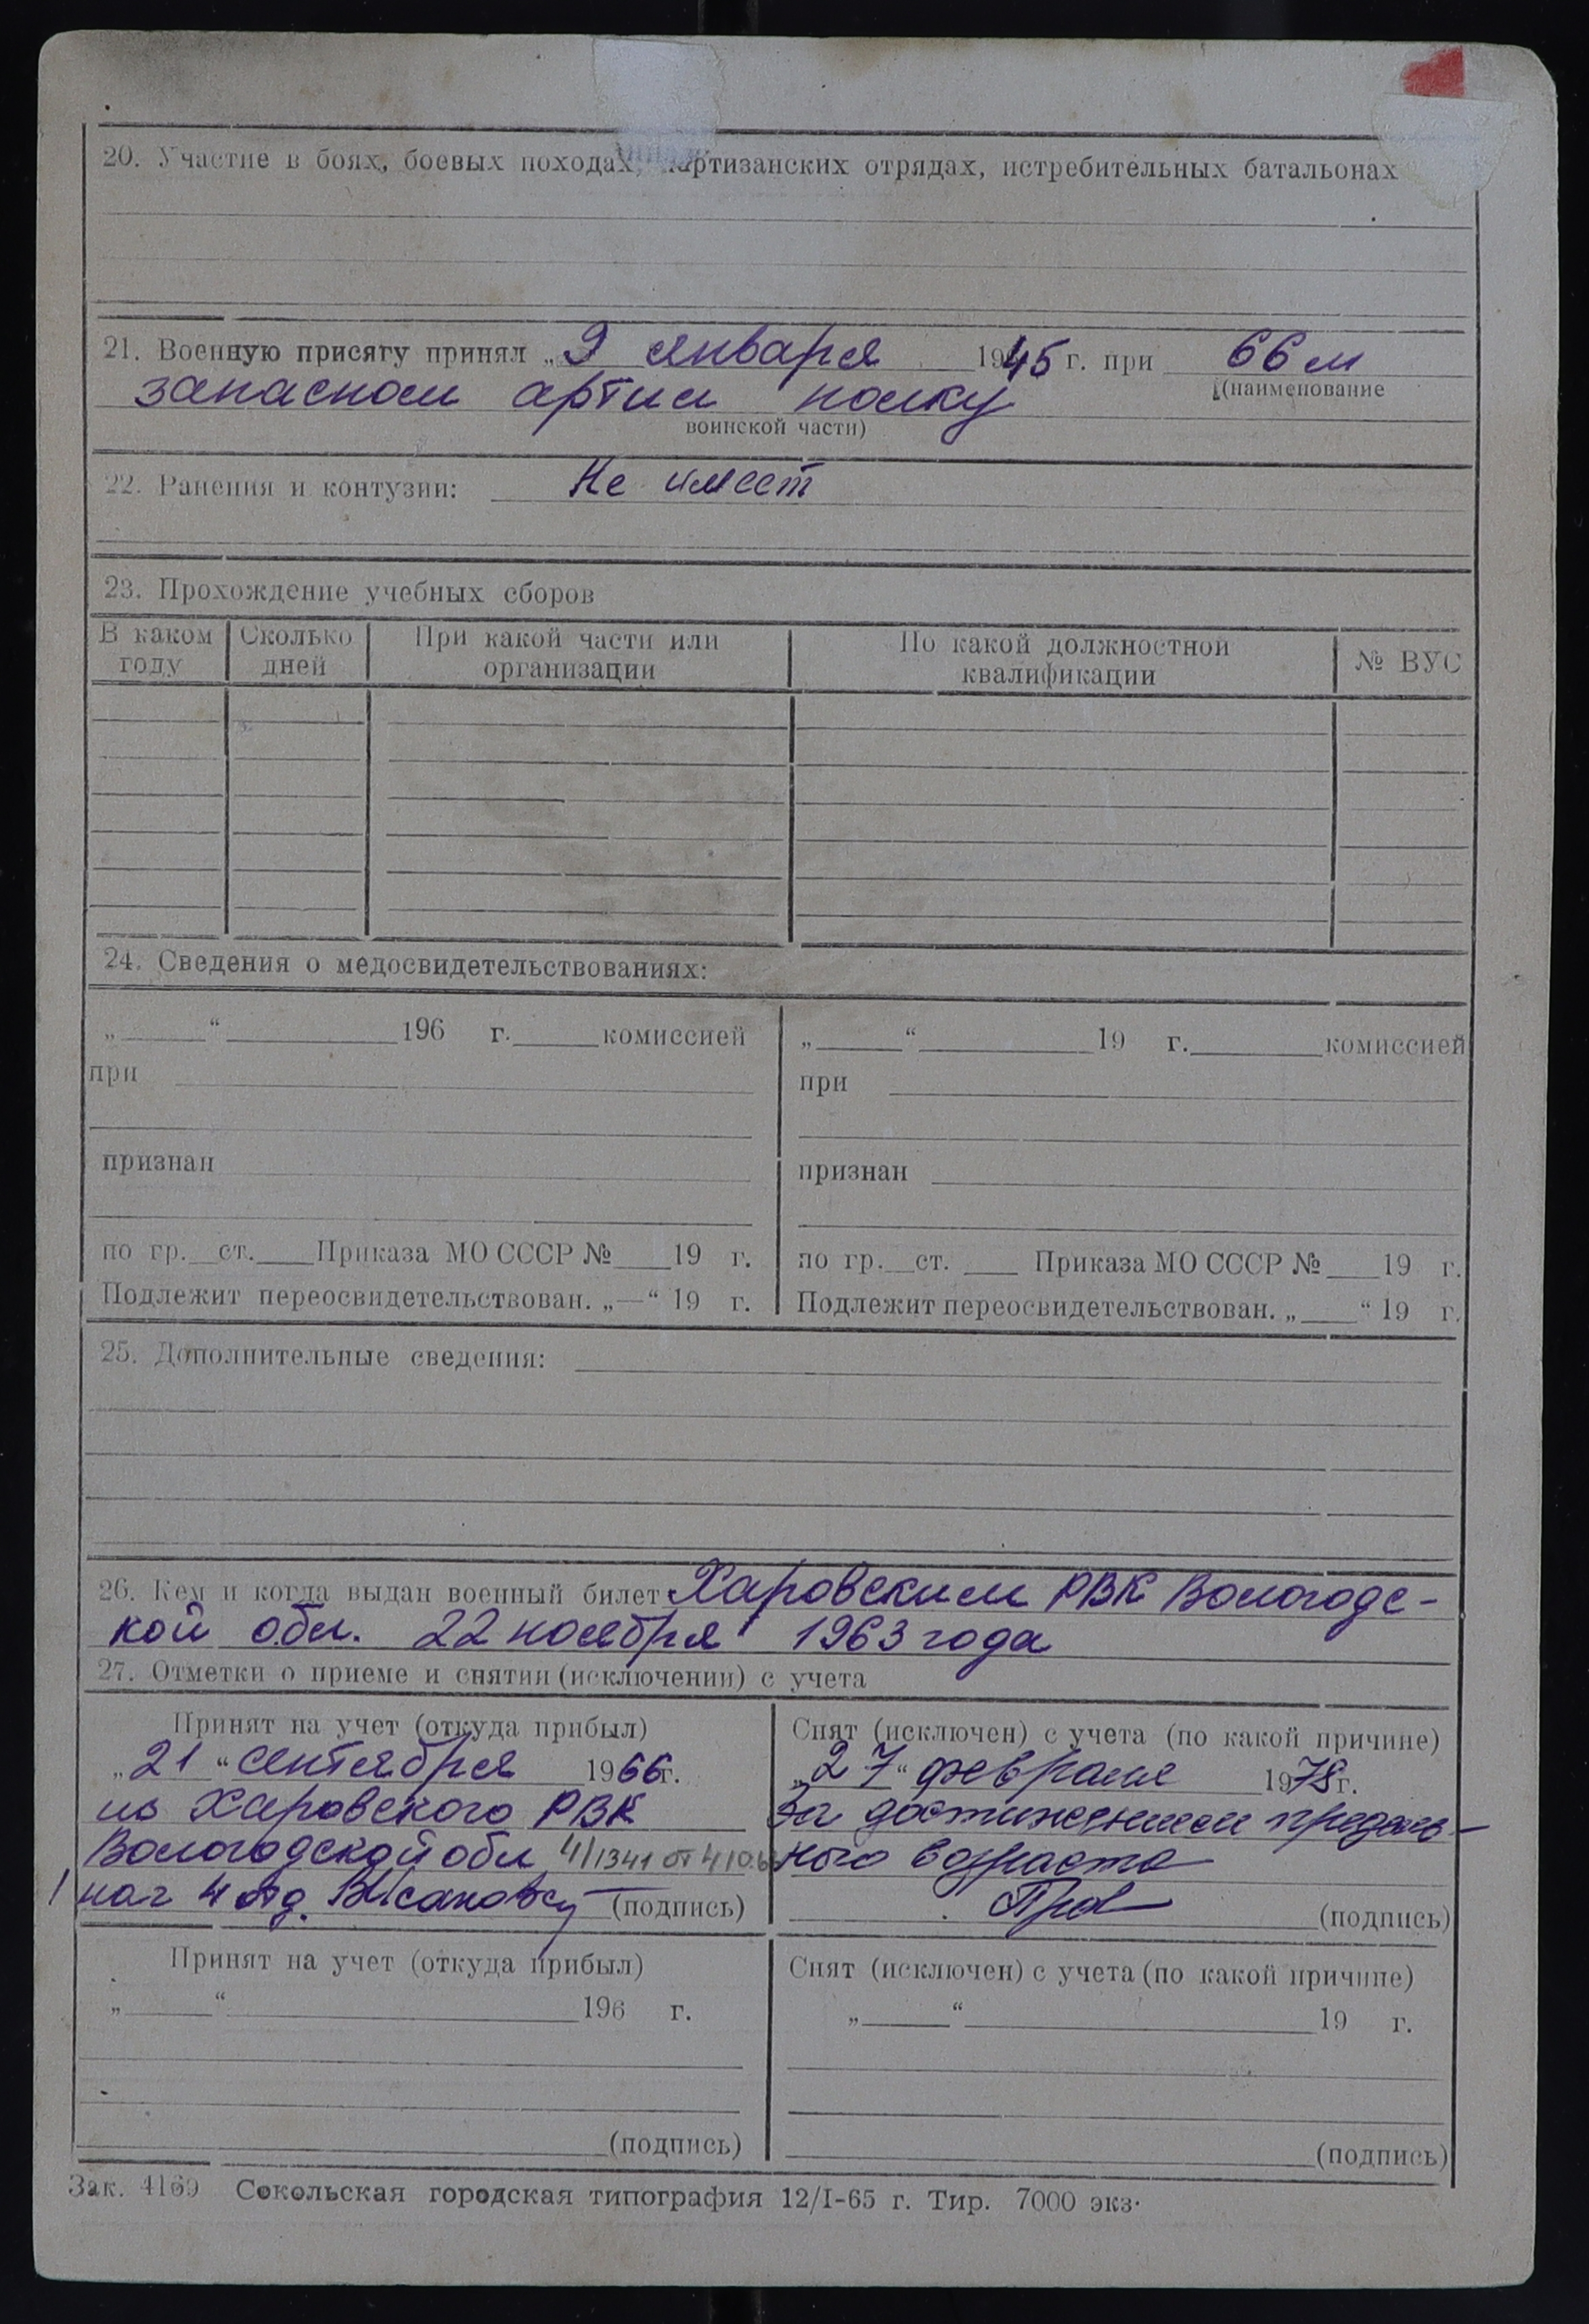 20. Участие в боях, боевых походах, партизанских отрядах, истребительных батальонах
21. Военную присягу принял „ 9 января 1945 г. при 66 м
запасном артил полку
(наименование
воинской части)
22. Ранения и контузии: Не имеет
23. Прохождение учебных сборов
В каком году Сколько дней При какой части или организации По какой должностной квалификации № ВУС
24. Сведения о медосвидетельствованиях:
„ “ 196 г. комиссией
при
признан
по гр. ст. Приказа МО СССР № 19 г.
Подлежит переосвидетельствован. „—“ 19 г.
„ “ 19 г. комиссией
при
признан
по гр. ст. Приказа МО СССР № 19 г.
Подлежит переосвидетельствован. „ “ 19 г.
25. Дополнительные сведения:
26. Кем и когда выдан военный билет Харовским РВК Вологодс-
кой обл. 22 ноября 1963 года
27. Отметки о приеме и снятии (исключении) с учета
Принят на учет (откуда прибыл)
„21“ сентября 1966г.
из Харовского РВК
Вологодской обл 4/1341 от 4/10.6
нач 4 отд. (подпись)
Снят (исключен) с учета (по какой причине)
„27“ февраля 1978г.
За достижением предель-
ного возраста
(подпись)
Принят на учет (откуда прибыл)
„ “ 196 г.
(подпись)
Снят (исключен) с учета (по какой причине)
„ “ 19 г.
(подпись)
Зак. 4169 Сокольская городская типография 12/I-65 г. Тир. 7000 экз.